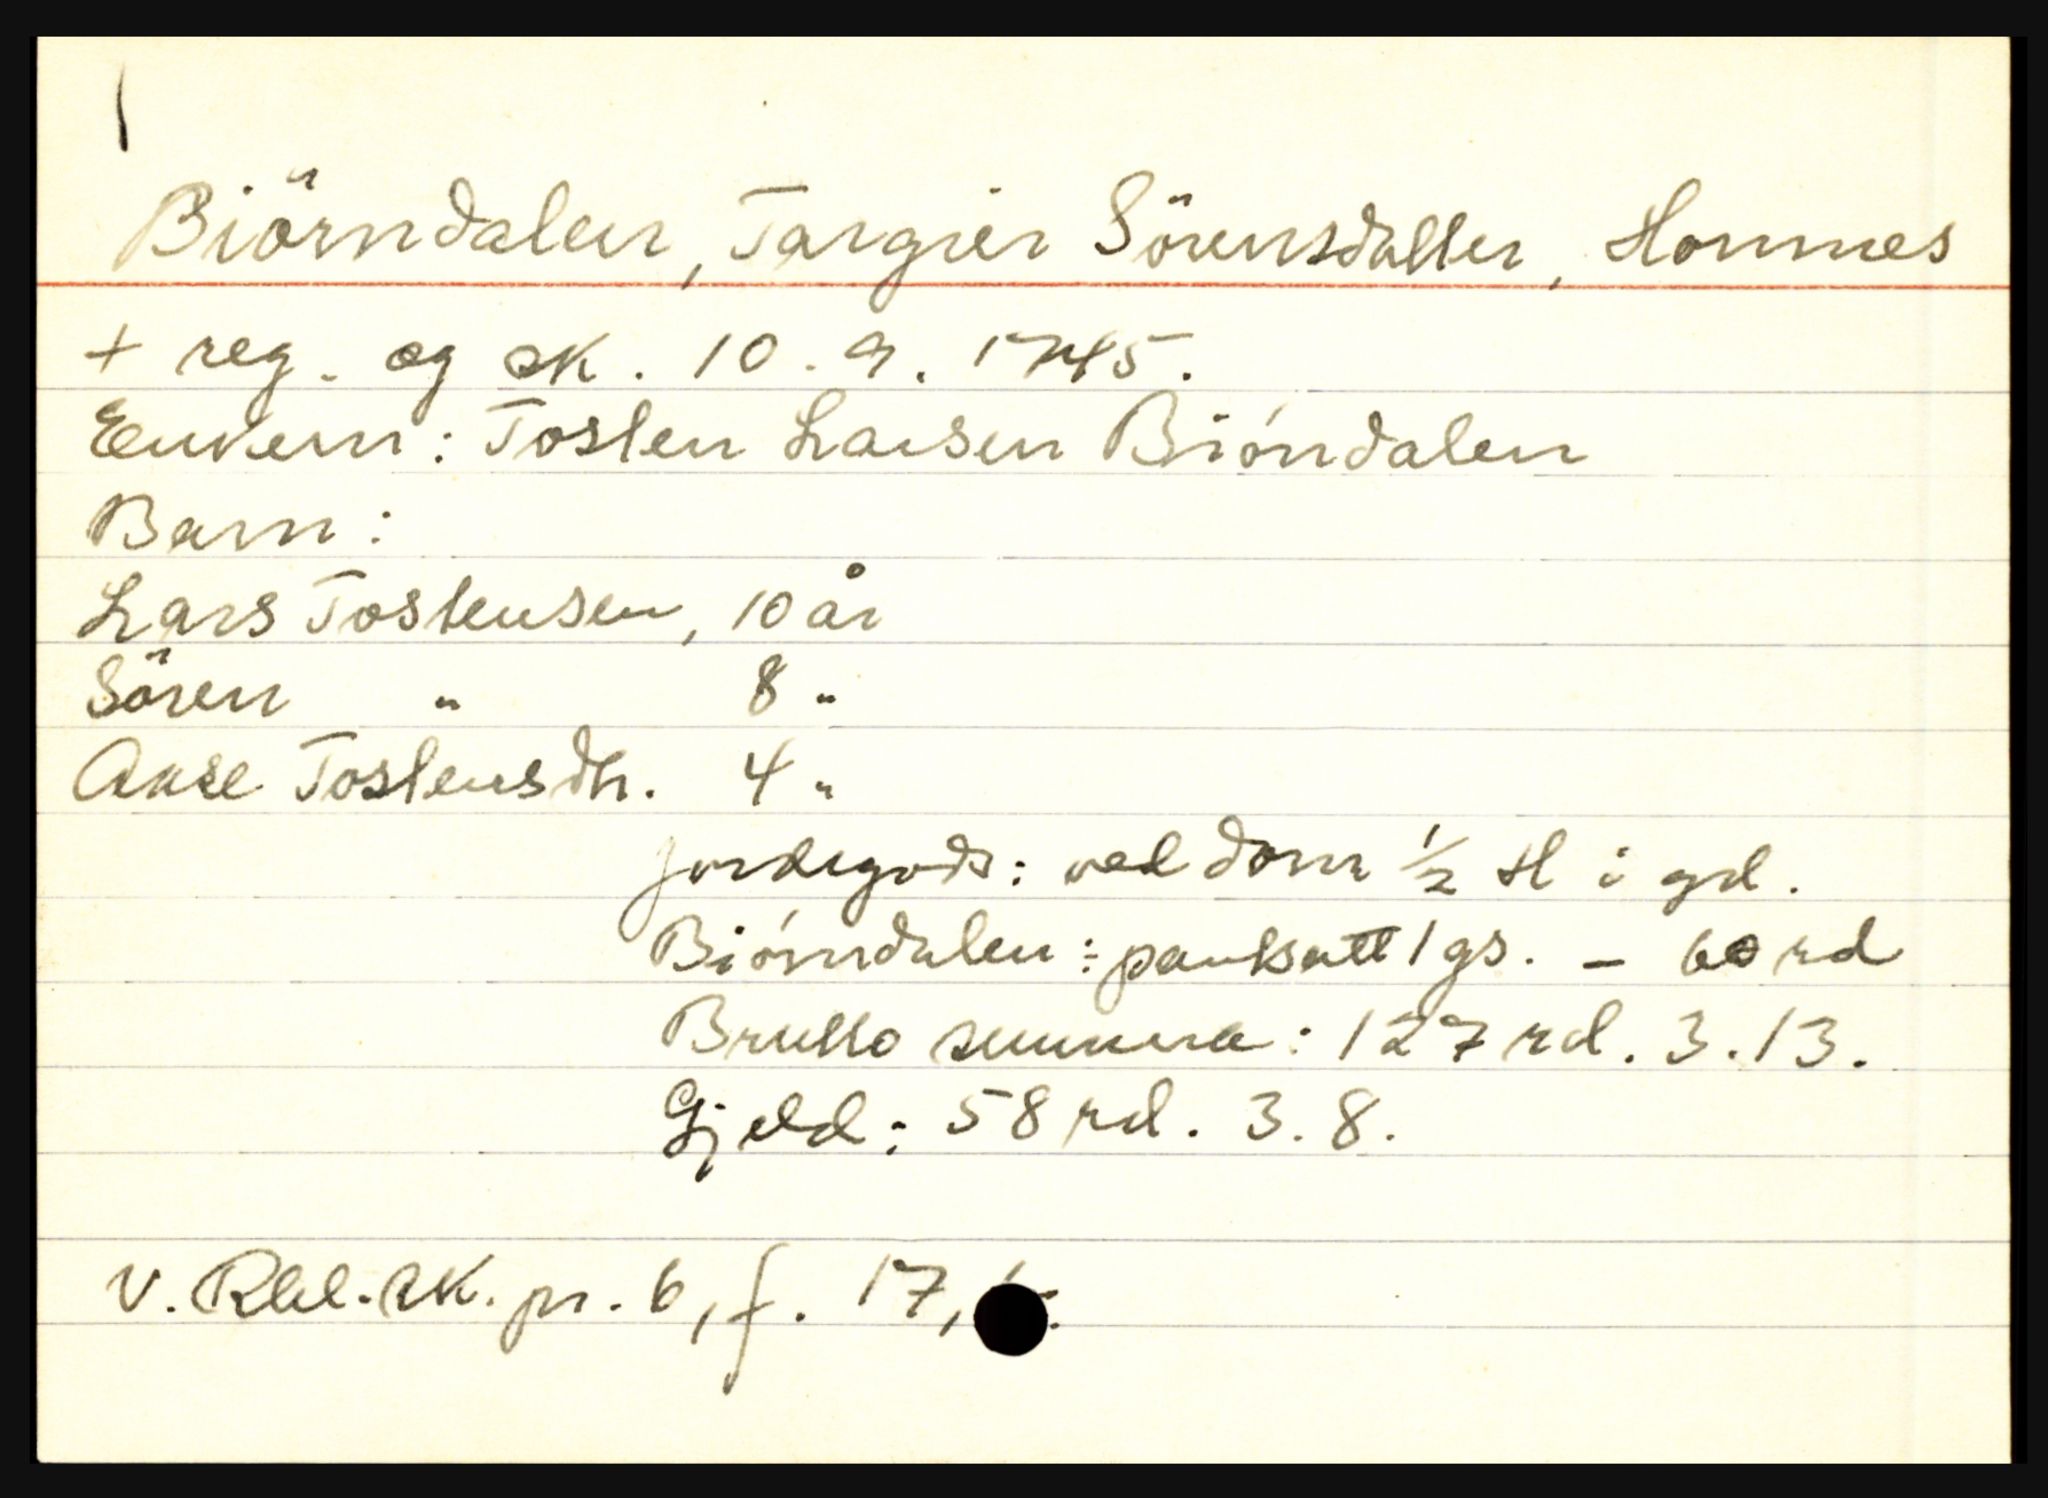 Biörndalen, Targier Sörensdatter, Hommes
+ reg. og sk. 10. 9. 1745.
Enkem: Tosten Larsen Bióndalen
Barn:
Lars Tostensen, 10 år
Sören " 8 "
Aase Tostensdtr. 4 "
Jordegods: ved dom ½ H i gd.
Biórndalen: pantsatt 1 gs. - 60 rd
Brutto summa: 127 rd. 3. 13.
Gjeld: 58 rd. 3. 8.
V. Rbl. sk. pr. 6, f. 17,